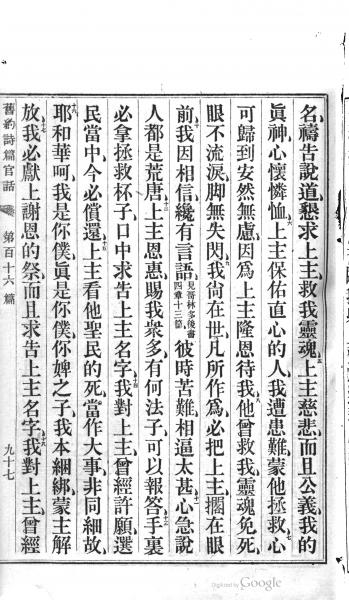 名禱告說道懇求上主救我靈魂五上主慈悲而且公義我的
眞神心懷憐恤六上主保佑直心的人我遭患難蒙他拯救七心
可歸到安然無慮因爲上主隆恩待我八他曾救我靈魂免死
眼不流淚脚無失閃九我尙在世凡所作爲必把上主擱在眼
前十我因相信纔有言語見哥林多後書四章十三節彼時苦難相逼太甚十一心急說
人都是荒唐十二上主恩惠賜我衆多有何法子可以報答十三手裏
必拿拯救杯子口中求告上主名字十四我對上主曾經許願選
民當中今必償還十五上主看他聖民的死當作大事非同細故
十六耶和華呵我是你僕眞是你僕你婢之子我本綑綁蒙主解
放十七我必獻上謝恩的祭而且求告上主名字十八我對上主曾經
舊約詩篇官話 第百十六篇 九十七
Digitized by Google